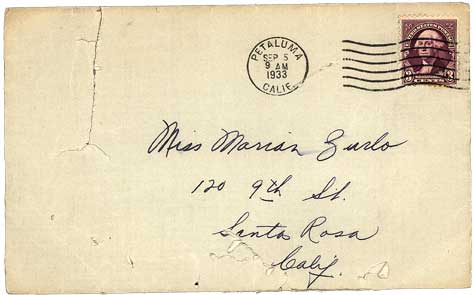 PETALUMA
SEP 5
9 AM
1933
CALIF.
UNITED STATES POSTAGE
3 CENTS 3
Miss Marian Zurlo
120 9th St.
Santa Rosa
Calif.